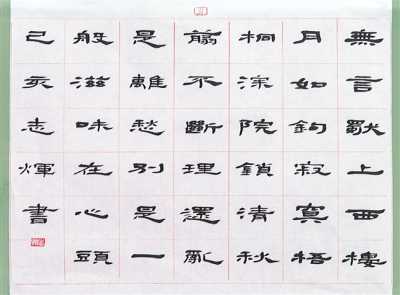 無言獨上西樓
月如鉤寂寞梧
桐深院鎖清秋
翦不斷理還亂
是離愁別是一
般滋味在心頭
己亥志煇書